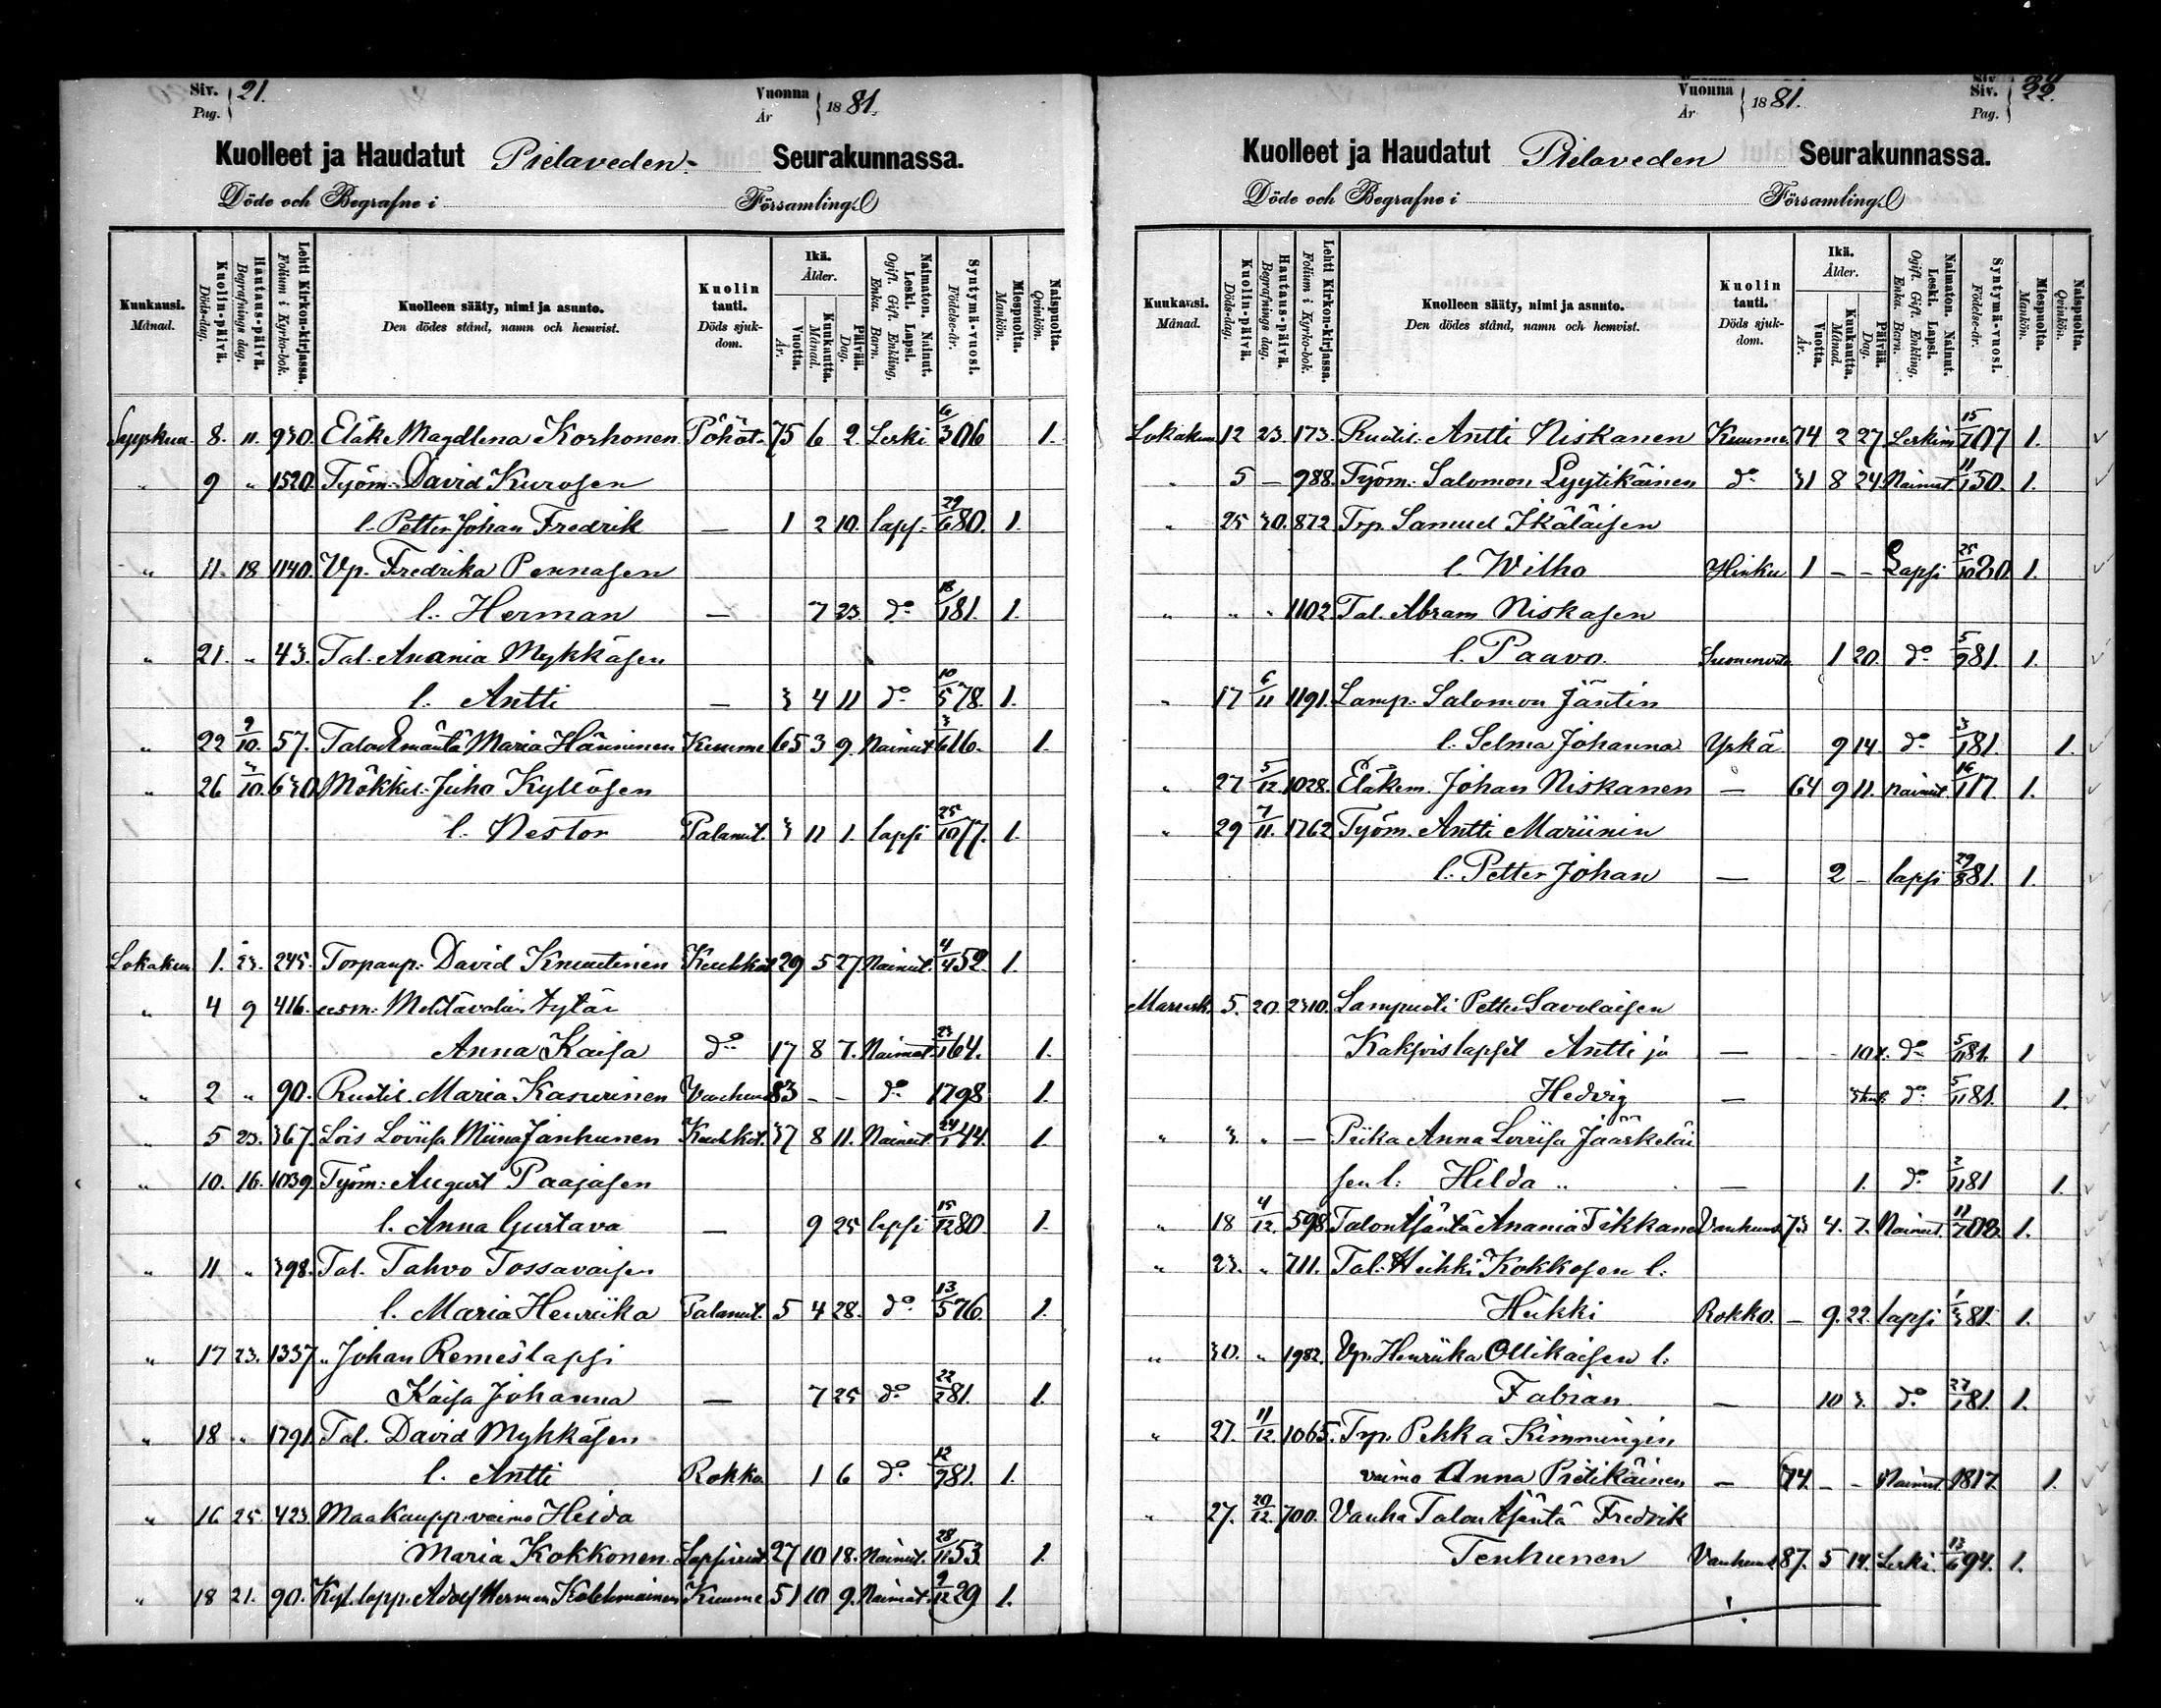 Siv. Pag. 21. Vuonna År 1881.
Kuolleet ja Haudatut Pielaveden Seurakunnassa.
Döde och Begrafne i Församling.
Kuukausi. Månad. Kuolin-päivä. Döds-dag. Hautaus-päivä. Begrafnings dag. Lehti Kirkon-kirjassa. Folium i Kyrko-bok. Kuolleen sääty, nimi ja asunto. Den dödes stånd, namn och hemvist. Kuolin tauti. Döds sjukdom. Ikä. Ålder. Vuotta. År. Kuukautta. Månad. Päivää. Dag. Naimaton. Nainut. Leski. Lapsi. Ogift. Gift. Enkling, Enka. Barn. Syntymä-vuosi. Födelse-år. Miespuolta. Mankön. Naispuolta. Qvinkön.
Syyskuu. 8. 11. 930. Eläke Magdlena Korhonen Pöhöt. 75 6 2. Leski 6/3 06 1.
" 9 " 1520. Työm. David Kurosen
l. Petter Johan Fredrik — 1 2 10. laps. 29/6 80. 1.
" 11. 18. 1140. Vp. Fredrika Pennasen
l. Herman — 7 23. d:o 18/1 81. 1.
" 21. " 43. Tal. Anania Mykkäsen
l. Antti — 3 4 11 d:o 10/5 78. 1.
" 22 9/10. 57. Talon Emäntä Maria Hänninen Kuume 65 3 9. Nainut 3/6 16. 1.
" 26 3/10. 630. Mökkil. Juho Kyllösen
l. Nestor Palanut. 3 11 1. lapsi 25/10 77. 1.
Lokakuu 1. 23. 245. Torpanp. David Knuutinen Keuhkot 29 5 27. Nainut. 4/4 52. 1.
" 4 9 416. tytär
Anna Kaisa d:o 17 8 7. Naimat. 23/1 64. 1.
" 2 " 90. Ruotil. Maria Kasurinen Vanhuus 83 – – d:o 1798 1.
" 5 23. 367. Lois Loviisa Miina Janhunen Keuhkot. 37 8 11. Nainut. 24/1 44. 1.
" 10. 16. 1039. Työm: August Paajasen
l. Anna Gustava — 9 25 lapsi 15/12 80. 1.
" 11 " 398. Tal. Tahvo Tossavaisen
l. Maria Henriika Palanut. 5 4 28. d:o 13/5 76. 1.
" 17 23. 1337. " Johan Remes lapsi
Kaisa Johanna — 7 25 d:o 22/2 81. 1.
" 18 " 1791. Tal. David Mykkäsen
l. Antti Rokko 1 6 d:o 12/9 81. 1.
" 16 25. 423. Maakaupp. vaimo Heida
Maria Kokkonen. Lapsivuot. 27 10 18. Nainut. 28/11 53. 1.
" 18 21. 90. Kyl. lapp. Adolf Herman Kolehmainen Kuume 51 10 9. Naimat. 9/12 29 1.
Vuonna År 1881. Siv. Pag. 22.
Kuolleet ja Haudatut Pielaveden Seurakunnassa.
Döde och Begrafne i Församling.
Kuukausi. Månad. Kuolin-päivä. Döds-dag. Hautaus-päivä. Begrafnings dag. Lehti Kirkon-kirjassa. Folium i Kyrko-bok. Kuolleen sääty, nimi ja asunto. Den dödes stånd, namn och hemvist. Kuolin tauti. Döds sjukdom. Ikä. Ålder. Vuotta. År. Kuukautta. Månad. Päivää. Dag. Naimaton. Nainut. Leski. Lapsi. Ogift. Gift. Enkling, Enka. Barn. Syntymä-vuosi. Födelse-år. Miespuolta. Mankön. Naispuolta. Qvinkön.
Lokakuu 12 23. 173. Ruotil. Antti Niskanen Kuume 74 2 27. Leskim. 15/7 07 1.
" 5 — 988. Työm. Salomon Lyytikäinen d:o 31 8 24. Nainut. 11/1 50. 1.
" 25 30. 872 Trp. Samuel Ikäläisen
l. Wilho Hinku 1 – – Lapsi 25/10 80 1.
" " " 1102. Tal. Abram Niskasen
l. Paavo. Suonenveto 1 20. d:o 5/9 81. 1.
" 17 6/11 1191. Lamp. Salomon Jäntin
l. Selma Johanna Yskä 9 14. d:o 3/1 81. 1.
" 27 5/12. 1028. Eläkem. Johan Niskanen — 64 9 11. nainut. 16/1 17. 1.
" 29 7/11. 1762 Työm. Antti Mariinin
l. Petter Johan — 2 – lapsi 29/8 81. 1.
Marrask. 5. 20. 2310. Lampuoti Petter Savolaisen
Kaksois lapset Antti ja — – – 10 t. d:o 5/11 81. 1
Hedvig — d:o 5/11 81. 1.
" 3. " — Piika Anna Loviisa Jääskeläi
sen l: Hilda " — 1. d:o 2/11 81 1.
" 18 4/12. 598. Talon Isäntä Anania Tikkanen Vanhuus. 73 4. 7. Nainut. 11/7 08. 1.
" 23. " 711. Tal. Heikki Kokkosen l:
Heikki Rokko. – 9. 22. lapsi 1/3 81. 1.
" 30. " 1982. Vp. Henriika Ollikaisen l:
Fabian — 10 3. d:o 27/1 81. 1.
" 27. 11/12. 1065. Trp. Pekka Kimmingin
vaimo Anna Pietikäinen — 74. – – Nainut. 1817. 1.
" 27. 20/12. 700. Vanha Talon Isäntä Fredrik
Tenhunen Vanhuus 87. 5 14. Leski. 13/6 94. 1.